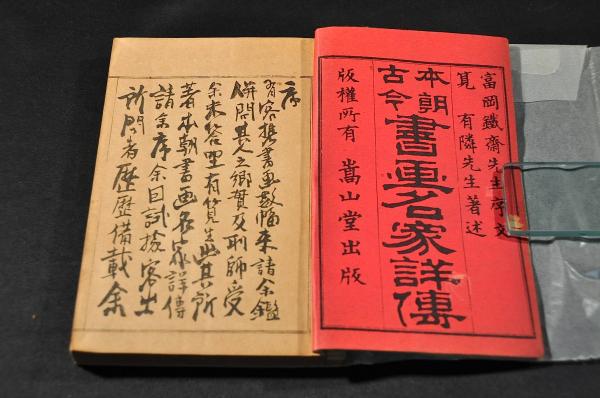 富岡鐵齋先生序文
筧 有隣先生著述
本朝
古今
書画名家詳傳
版權所有 嵩山堂出版
序
有客携書画数幅来請余鑑
併問其人之郷貫及所師受
余未答 有筧生出其所
著本朝書画名家詳傳
請余序余因試撿客
所問者歴歴備載余